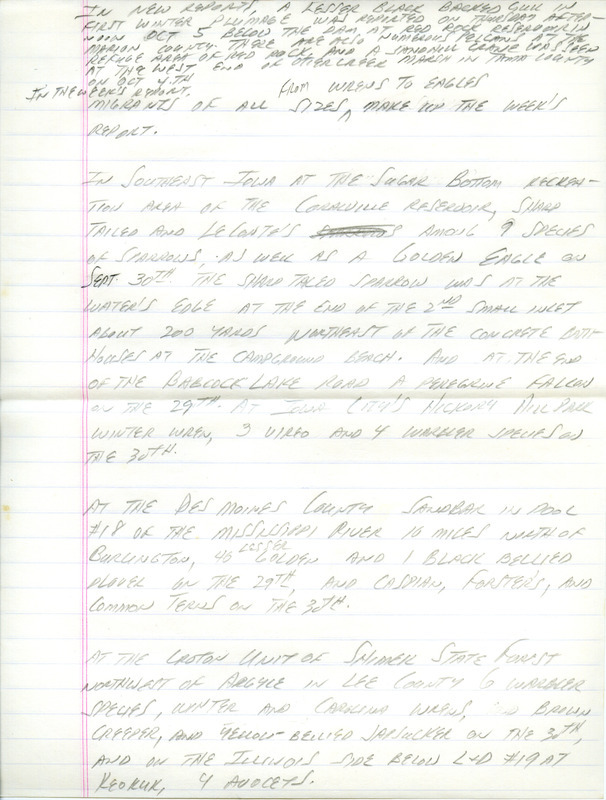 IN NEW REPORTS, A LESSER BLACK BACKED GULL IN
FIRST WINTER PLUMAGE WAS REPORTED ON THURSDAY AFTER-
NOON OCT 5 BELOW THE DAM AT RED ROCK RESERVOIR IN
MARION COUNTY. THERE ARE ALSO NUMEROUS PELICANS AT THE
REFUGE AREA OF RED ROCK AND A SANDHILL CRANE WAS SEEN
AT THE WEST END OF OTTER CREEK MARSH IN TAMA COUNTY
ON OCT 4TH
IN THE WEEK'S REPORT, FROM WRENS TO EAGLES
MIGRANTS OF ALL SIZES ^ MAKE UP THE WEEK'S
REPORT.
IN SOUTHEAST IOWA AT THE SUGAR BOTTOM RECREA-
TION AREA OF THE CORALVILLE RESERVOIR, SHARP
TAILED AND LECONTE'S AMONG 9 SPECIES
OF SPARROWS, AS WELL AS A GOLDEN EAGLE ON
SEPT. 30TH. THE SHARP TAILED SPARROW WAS AT THE
WATER'S EDGE AT THE END OF THE 2ND SMALL INLET
ABOUT 200 YARDS NORTHEAST OF THE CONCRETE BATH
HOUSES AT THE CAMPGROUND BEACH. AND AT THE END
OF THE BABCOCK LAKE ROAD A PEREGRINE FALCON
ON THE 29TH. AT IOWA CITY'S HICKORY HILL PARK
WINTER WREN, 3 VIREO AND 4 WARBLER SPECIES ON
THE 30TH.
AT THE DES MOINES COUNTY SANDBAR IN POOL
#18 OF THE MISSISSIPPI RIVER 10 MILES NORTH OF
BURLINGTON, 40 LESSER GOLDEN AND 1 BLACK BELLIED
PLOVER ON THE 29TH, AND CASPIAN, FORSTER'S, AND
COMMON TERNS ON THE 30TH.
AT THE CROTON UNIT OF SHIMEK STATE FOREST
NORTHWEST OF ARGYLE IN LEE COUNTY 6 WARBLER
SPECIES, WINTER AND CAROLINA WRENS, AND BROWN
CREEPER, AND YELLOW-BELLIED SAPSUCKER ON THE 30TH,
AND ON THE ILLINOIS SIDE BELOW L+D #19 AT
KEOKUK, 4 AVOCETS.